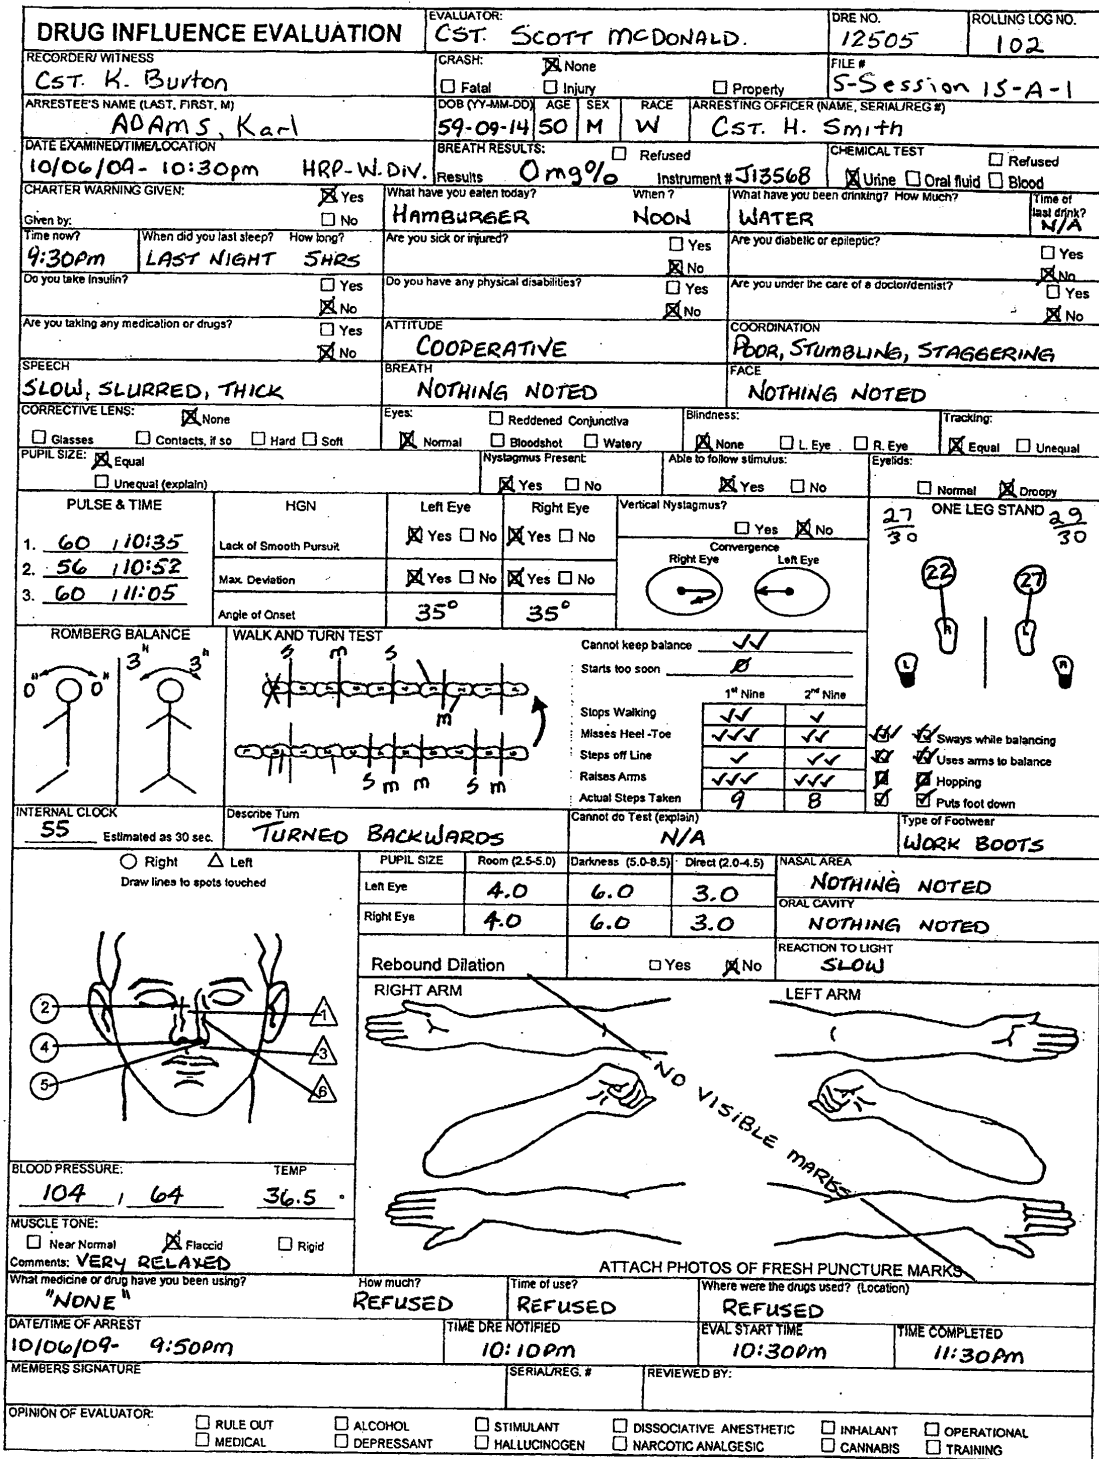 DRUG INFLUENCE EVALUATION
EVALUATOR:
CST. SCOTT McDONALD.
DRE NO.
12505
ROLLING LOG NO.
102
RECORDER/ WITNESS
CST. K. Burton
CRASH:
None
Fatal Injury Property
FILE #
S-Session 15-A-1
ARRESTEE'S NAME (LAST, FIRST, M)
ADAMS, Karl
DOB (YY-MM-DD) AGE SEX RACE
59-09-14 50 M W
ARRESTING OFFICER (NAME, SERIAL/REG #)
CST. H. Smith
DATE EXAMINED/TIME/LOCATION
10/06/09- 10:30pm HRP-W.DIV.
BREATH RESULTS: Refused
Results 0mg% Instrument # J13568
CHEMICAL TEST Refused
Urine Oral fluid Blood
CHARTER WARNING GIVEN: Yes
Given by: No
What have you eaten today? When ?
HAMBURGER NOON
What have you been drinking? How Much?
WATER
Time of last drink?
N/A
Time now?
9:30pm
When did you last sleep? How long?
LAST NIGHT 5HRS
Are you sick or injured? Yes
No
Are you diabetic or epileptic?
Yes
No
Do you take insulin? Yes
No
Do you have any physical disabilities? Yes
No
Are you under the care of a doctor/dentist?
Yes
No
Are you taking any medication or drugs? Yes
No
ATTITUDE
COOPERATIVE
COORDINATION
POOR, STUMBLING, STAGGERING
SPEECH
SLOW, SLURRED, THICK
BREATH
NOTHING NOTED
FACE
NOTHING NOTED
CORRECTIVE LENS: None
Glasses Contacts, if so Hard Soft
Eyes: Reddened Conjunctiva
Normal Bloodshot Watery
Blindness:
None L. Eye R. Eye
Tracking:
Equal Unequal
PUPIL SIZE: Equal
Unequal (explain)
Nystagmus Present:
Yes No
Able to follow stimulus:
Yes No
Eyelids:
Normal Droopy
PULSE & TIME
1. 60 / 10:35
2. 56 / 10:52
3. 60 / 11:05
HGN Left Eye Right Eye
Lack of Smooth Pursuit Yes No Yes No
Max. Deviation Yes No Yes No
Angle of Onset 35° 35°
Vertical Nystagmus?
Yes No
Convergence
Right Eye Left Eye
ONE LEG STAND
27/30 29/30
22 27
R L
L R
Sways while balancing
Uses arms to balance
Hopping
Puts foot down
ROMBERG BALANCE
0" 0" 3" 3"
WALK AND TURN TEST
S M S
M
S M M S M
Cannot keep balance
Starts too soon
1st Nine 2nd Nine
Stops Walking
Misses Heel -Toe
Steps off Line
Raises Arms
Actual Steps Taken 9 8
INTERNAL CLOCK
55 Estimated as 30 sec.
Describe Turn
TURNED BACKWARDS
Cannot do Test (explain)
N/A
Type of Footwear
WORK BOOTS
Right Left
Draw lines to spots touched
2 1
4 3
5 6
PUPIL SIZE Room (2.5-5.0) Darkness (5.0-8.5) Direct (2.0-4.5)
Left Eye 4.0 6.0 3.0
Right Eye 4.0 6.0 3.0
NASAL AREA
NOTHING NOTED
ORAL CAVITY
NOTHING NOTED
Rebound Dilation Yes No
REACTION TO LIGHT
SLOW
RIGHT ARM LEFT ARM
NO VISIBLE MARKS
ATTACH PHOTOS OF FRESH PUNCTURE MARKS
BLOOD PRESSURE: TEMP
104 / 64 36.5 °
MUSCLE TONE:
Near Normal Flaccid Rigid
Comments: VERY RELAXED
What medicine or drug have you been using?
"NONE"
How much?
REFUSED
Time of use?
REFUSED
Where were the drugs used? (Location)
REFUSED
DATE/TIME OF ARREST
10/06/09- 9:50pm
TIME DRE NOTIFIED
10:10pm
EVAL START TIME
10:30pm
TIME COMPLETED
11:30pm
MEMBERS SIGNATURE
SERIAL/REG. #
REVIEWED BY:
OPINION OF EVALUATOR:
RULE OUT ALCOHOL STIMULANT DISSOCIATIVE ANESTHETIC INHALANT OPERATIONAL
MEDICAL DEPRESSANT HALLUCINOGEN NARCOTIC ANALGESIC CANNABIS TRAINING